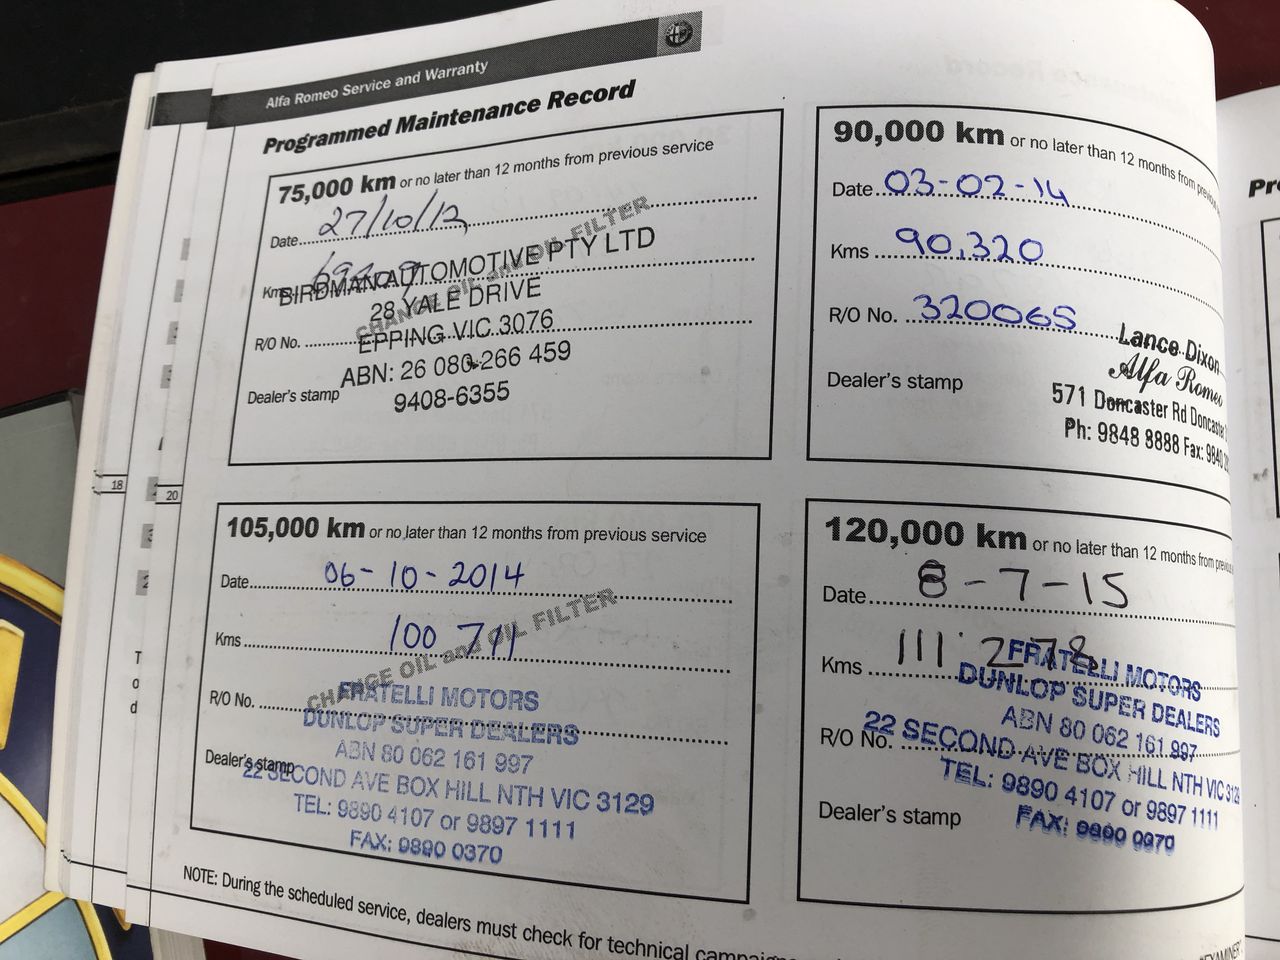 Alfa Romeo Service and Warranty
Programmed Maintenance Record
75,000 km or no later than 12 months from previous service
Date 27/10/12
Kms
CHANGE OIL and OIL FILTER
BIRDMAN AUTOMOTIVE PTY LTD
28 YALE DRIVE
R/O No.
EPPING VIC 3076
ABN: 26 080 266 459
Dealer's stamp
9408-6355
90,000 km or no later than 12 months from
Date 03-02-14
Kms 90,320
R/O No. 320065
Lance Dixon
Alfa Romeo
Dealer's stamp
571 Doncaster Rd Doncaster
Ph: 9848 8888 Fax:
18
20
105,000 km or no later than 12 months from previous service
Date 06-10-2014
Kms 100 711
CHANGE OIL and OIL FILTER
R/O No.
FRATELLI MOTORS
DUNLOP SUPER DEALERS
ABN 80 062 161 997
Dealer's stamp
22 SECOND AVE BOX HILL NTH VIC 3129
TEL: 9890 4107 or 9897 1111
FAX: 9890 0370
120,000 km or no later than 12 months from
Date 8-7-15
Kms 111 278
FRATELLI MOTORS
DUNLOP SUPER DEALERS
ABN 80 062 161 997
R/O No.
22 SECOND AVE BOX HILL NTH VIC 3129
TEL: 9890 4107 or 9897 1111
Dealer's stamp
FAX: 9890 0370
NOTE: During the scheduled service, dealers must check for technical